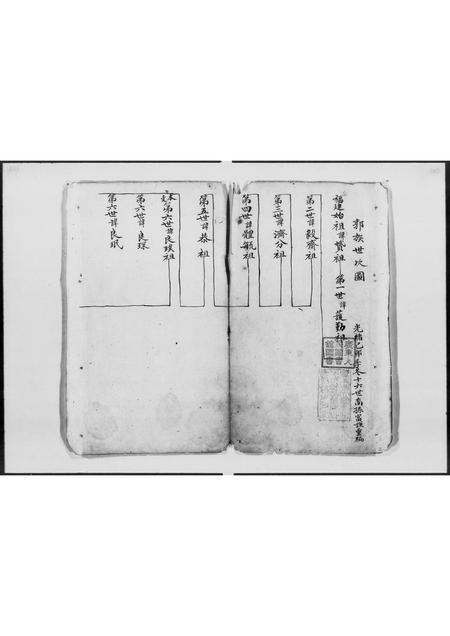 郭族世次圖
光緒己卯年冬十六世裔孫富謹重編
福建始祖諱贊祖 第一世諱護勤祖
第二世諱毅齋祖
第三世諱濟分祖
第四世諱體甑祖
第五世諱恭祖
本支第六世諱良瑛祖
第六世諱良琛
第六世諱良珉